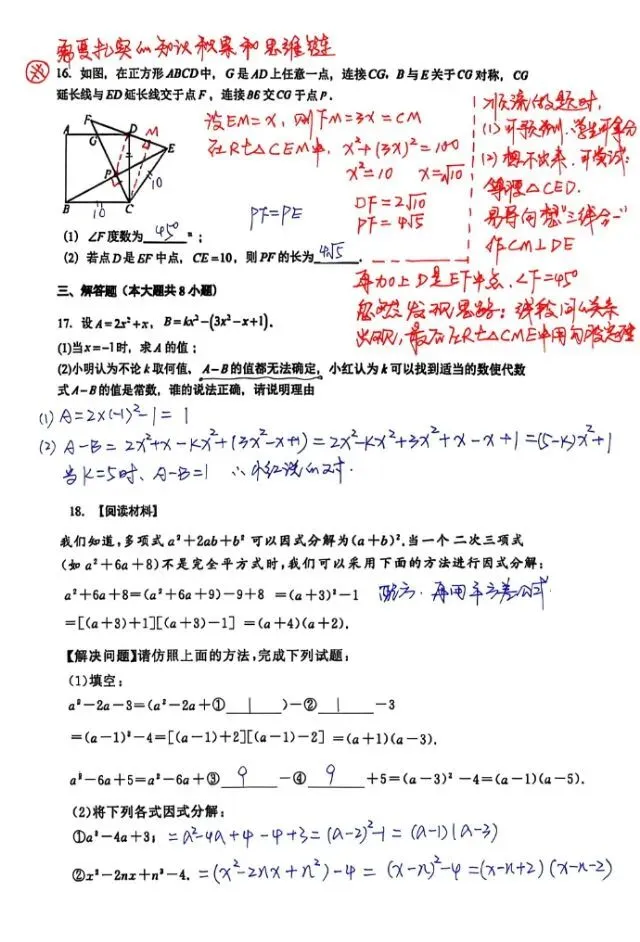 需要扎实的知识积累和思维链
16. 如图，在正方形ABCD中，G是AD上任意一点，连接CG，B与E关于CG对称，CG
延长线与ED延长线交于点F，连接BE交CG于点P．
F
A
G
D
M
E
P
B
C
10
10
设EM=x，则FM=3x=CM
在Rt△CEM中，x²+(3x)²=100
x²=10 x=√10
DF=2√10
PF=4√5
PF=PE
(1) ∠F度数为 45° °；
(2) 若点D是EF中点，CE=10，则PF的长为 4√5 ．
等腰△CED.
易导向想"三线合一"
作CM⊥DE
再加上D是EF中点，∠F=45°
忽然发现思路：线段间的关系
出现，最后在Rt△CME中用勾股定理
三、解答题（本大题共8小题）
17. 设A=2x²+x，B=kx²-(3x²-x+1)．
(1)当x=-1时，求A的值；
(2)小明认为不论k取何值，A-B的值都无法确定，小红认为k可以找到适当的数使代数
式A-B的值是常数，谁的说法正确，请说明理由
(1) A=2×(-1)²-1=1
(2) A-B=2x²+x-kx²+(3x²-x+1)=2x²-kx²+3x²+x-x+1=(5-k)x²+1
当k=5时，A-B=1 ∴小红说的对．
18. 【阅读材料】
我们知道，多项式a²+2ab+b²可以因式分解为(a+b)²．当一个二次三项式
(如a²+6a+8)不是完全平方式时，我们可以采用下面的方法进行因式分解：
a²+6a+8=(a²+6a+9)-9+8 =(a+3)²-1 配方．再用平方差公式
=[(a+3)+1][(a+3)-1] =(a+4)(a+2)．
【解决问题】请仿照上面的方法，完成下列试题：
(1)填空：
a²-2a-3=(a²-2a+① 1 )-② 1 -3
=(a-1)²-4=[(a-1)+2][(a-1)-2] =(a+1)(a-3)．
a²-6a+5=a²-6a+③ 9 -④ 9 +5=(a-3)²-4=(a-1)(a-5)．
(2)将下列各式因式分解：
①a²-4a+3； =a²-4a+4-4+3=(a-2)²-1=(a-1)(a-3)
②x²-2nx+n²-4． =(x²-2nx+n²)-4=(x-n)²-4=(x-n+2)(x-n-2)